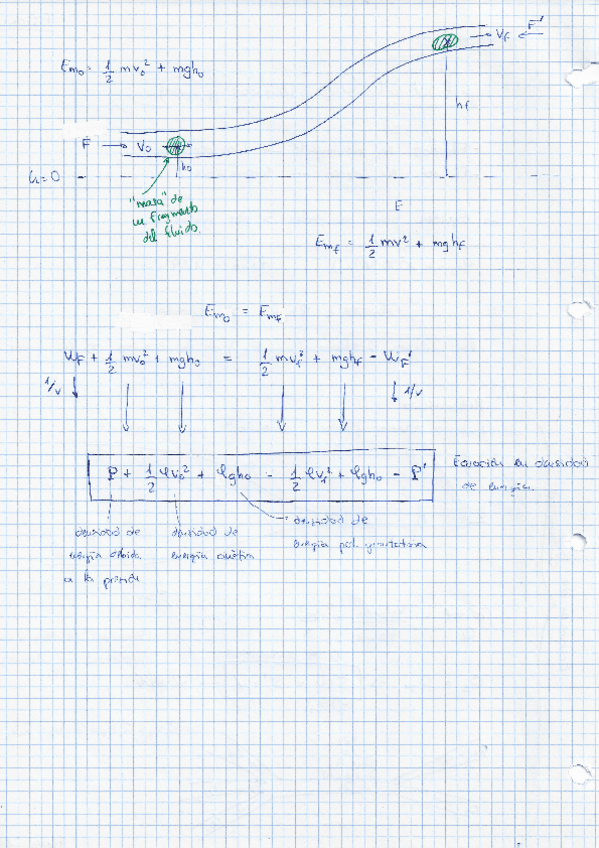 Em₀ = 1/2 mv₀² + mgh₀
Vf F'
hf
F V₀
h₀
h=0
"masa" de
un fragmento
del fluido.
E
Emf = 1/2 mv² + mghf
Em₀ = Emf
WF + 1/2 mv₀² + mgh₀ = 1/2 mvf² + mghf - WF'
1/v 1/v
P + 1/2 ρv₀² + ρgh₀ = 1/2 ρvf² + ρgh₀ - P'
Ecuación en densidad
de energía.
densidad de
energía debida
a la presión
densidad de
energía cinética
densidad de
energía pot. gravitatoria